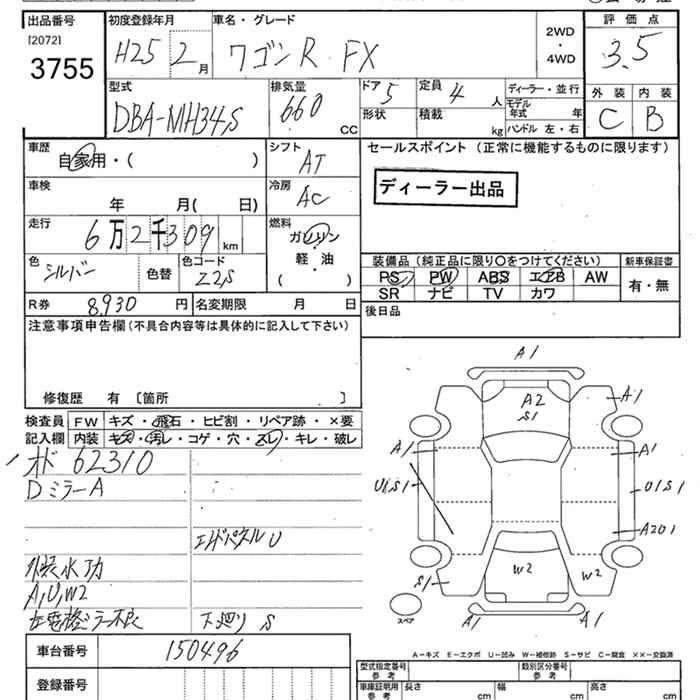 出品番号 初度登録年月 車名・グレード 評価点
[2072] 3755
H25 2月 ワゴンR FX
2WD・4WD
3.5
型式 排気量 ドア 定員 ディーラー・並行 外装 内装
DBA-MH34S 660 CC 5 4人 モデル年式 年 C B
形状 積載 kg ハンドル 左・右
車歴 シフト セールスポイント (正常に機能するものに限ります)
自家用・( ) AT
車検 冷房 ディーラー出品
年 月( 日) AC
走行 燃料
6万2千309km ガソリン
軽・油
( )
色 色替 色コード
シルバー Z2S
装備品 (純正品に限り○をつけてください) 新車保証書
PS PW ABS エアB AW 有・無
SR ナビ TV カワ
R券 8,930 円 名変期限 月 日
後日品
注意事項申告欄(不具合内容等は具体的に記入して下さい)
修復歴 有 〔箇所 〕
検査員記入欄 FW キズ・飛石・ヒビ割・リペア跡・×要
内装 キズ・汚レ・コゲ・穴・スレ・キレ・破レ
オド 62310
DミラーA
エンドパネルU
A,U,W2
下廻り S
車台番号 150496
登録番号
A1
A2
S1
A1
A1
A1
U1S1
U1S1
A2U1
W2
W2
S1
A1
A1
スペア
A-キズ E-エクボ U-凹み W-補修跡 S-サビ C-腐食 ××-交換済
型式指定番号 参考 類別区分番号 参考
車庫証明用 参考 長さ cm 幅 cm 高さ cm